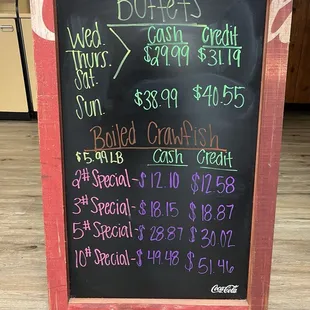 Buffets
Cash Credit
Wed. $29.99 $31.19
Thurs.
Sat.
Sun. $38.99 $40.55
Boiled Crawfish
$5.99 LB Cash Credit
2# Special - $12.10 $12.58
3# Special - $18.15 $18.87
5# Special - $28.87 $30.02
10# Special - $49.48 $51.46
Coca-Cola